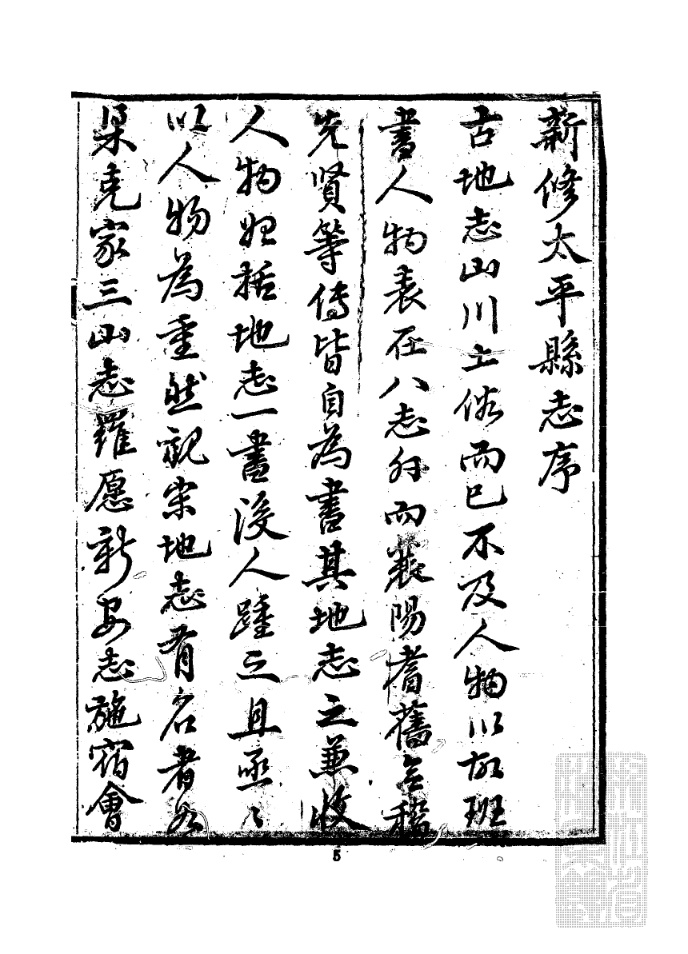 新修太平縣志序
古地志山川土俗而已不及人物以故班
書人物表在八志外而襄陽耆舊會稽
先賢等傳皆自為書其地志之兼收
人物始括地志一書後人踵之且亟亟
以人物為重然觀宋地志有名者如
梁克家三山志羅愿新安志施宿會
5